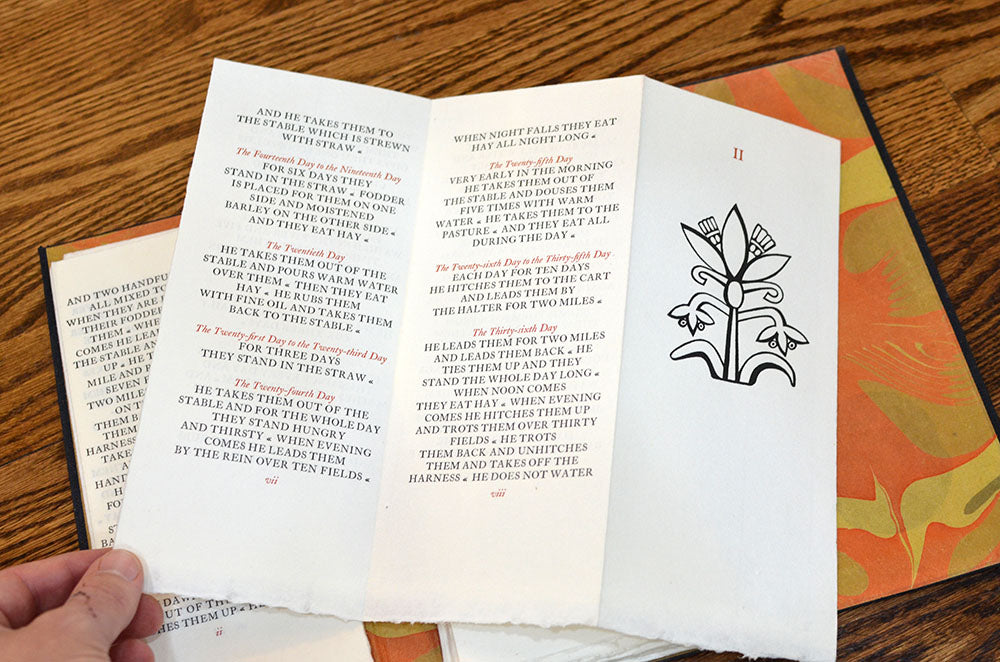 AND TWO
ALL MIXED
WHEN THEY ARE
THEIR FODDER
THEM «
COMES HE
THE STABLE
UP « HE
MILE AND
SEVEN
TWO MILES
ON
THEM
THEM
HARNESS
OUT OF
THEM UP «
ii
AND HE TAKES THEM TO
THE STABLE WHICH IS STREWN
WITH STRAW «
The Fourteenth Day to the Nineteenth Day
FOR SIX DAYS THEY
STAND IN THE STRAW « FODDER
IS PLACED FOR THEM ON ONE
SIDE AND MOISTENED
BARLEY ON THE OTHER SIDE «
AND THEY EAT HAY «
The Twentieth Day
HE TAKES THEM OUT OF THE
STABLE AND POURS WARM WATER
OVER THEM « THEN THEY EAT
HAY « HE RUBS THEM
WITH FINE OIL AND TAKES THEM
BACK TO THE STABLE «
The Twenty-first Day to the Twenty-third Day
FOR THREE DAYS
THEY STAND IN THE STRAW «
The Twenty-fourth Day
HE TAKES THEM OUT OF THE
STABLE AND FOR THE WHOLE DAY
THEY STAND HUNGRY
AND THIRSTY « WHEN EVENING
COMES HE LEADS THEM
BY THE REIN OVER TEN FIELDS «
vii
WHEN NIGHT FALLS THEY EAT
HAY ALL NIGHT LONG «
The Twenty-fifth Day
VERY EARLY IN THE MORNING
HE TAKES THEM OUT OF
THE STABLE AND DOUSES THEM
FIVE TIMES WITH WARM
WATER « HE TAKES THEM TO THE
PASTURE « AND THEY EAT ALL
DURING THE DAY «
The Twenty-sixth Day to the Thirty-fifth Day
EACH DAY FOR TEN DAYS
HE HITCHES THEM TO THE CART
AND LEADS THEM BY
THE HALTER FOR TWO MILES «
The Thirty-sixth Day
HE LEADS THEM FOR TWO MILES
AND LEADS THEM BACK « HE
TIES THEM UP AND THEY
STAND THE WHOLE DAY LONG «
WHEN NOON COMES
THEY EAT HAY « WHEN EVENING
COMES HE HITCHES THEM UP
AND TROTS THEM OVER THIRTY
FIELDS « HE TROTS
THEM BACK AND UNHITCHES
THEM AND TAKES OFF THE
HARNESS « HE DOES NOT WATER
viii
II